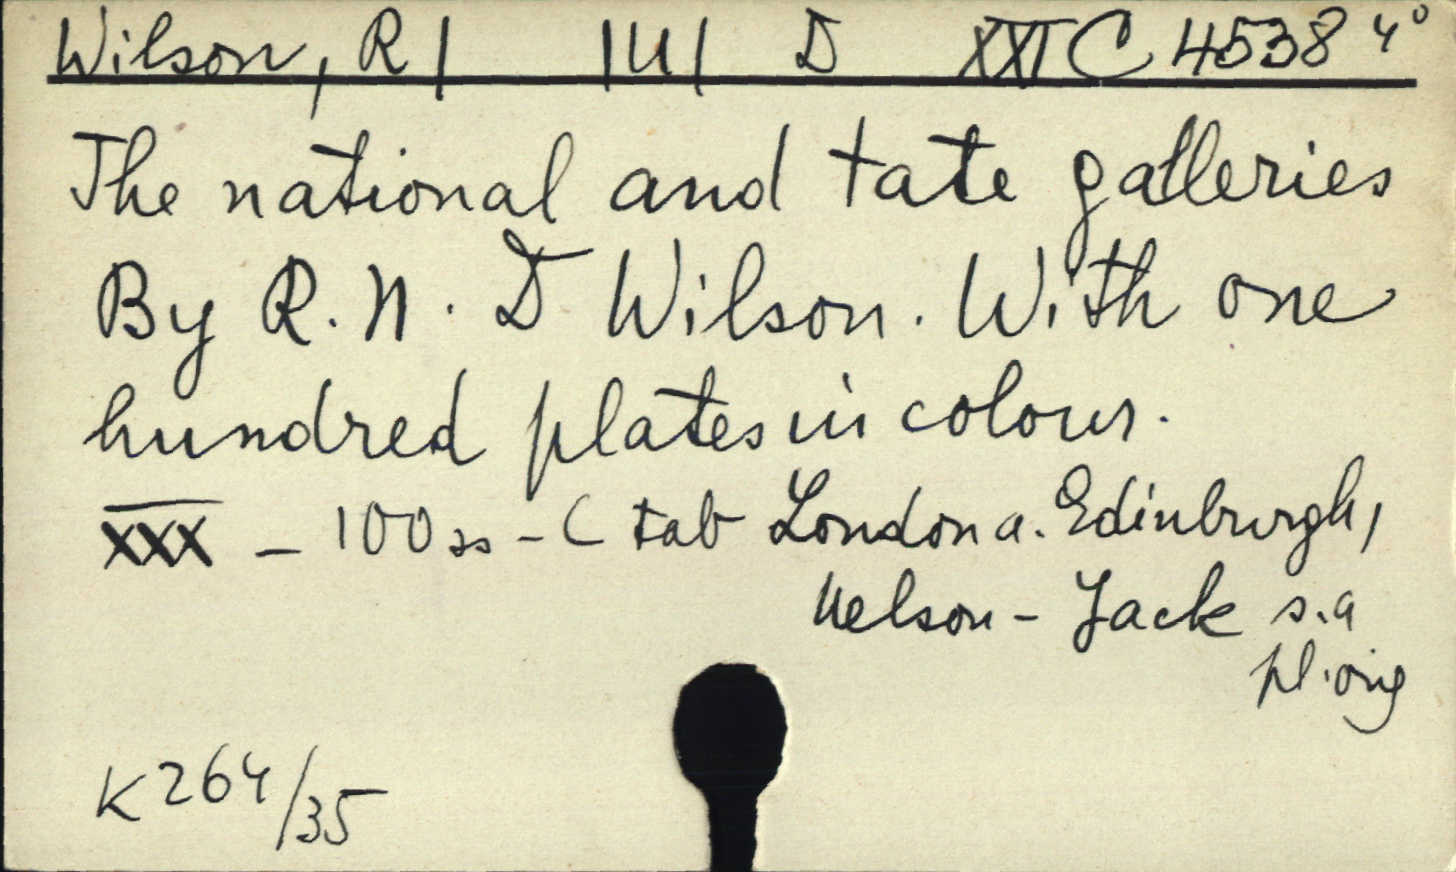 Wilson, R| |U| D XXI C 4538 4°
The national and tate galleries
By R. N. D Wilson. With one
hundred plates in colour.
XXX – 100 ss – C tab London a. Edinburgh,
Nelson – Jack s.a
pl. orig
K 264/35